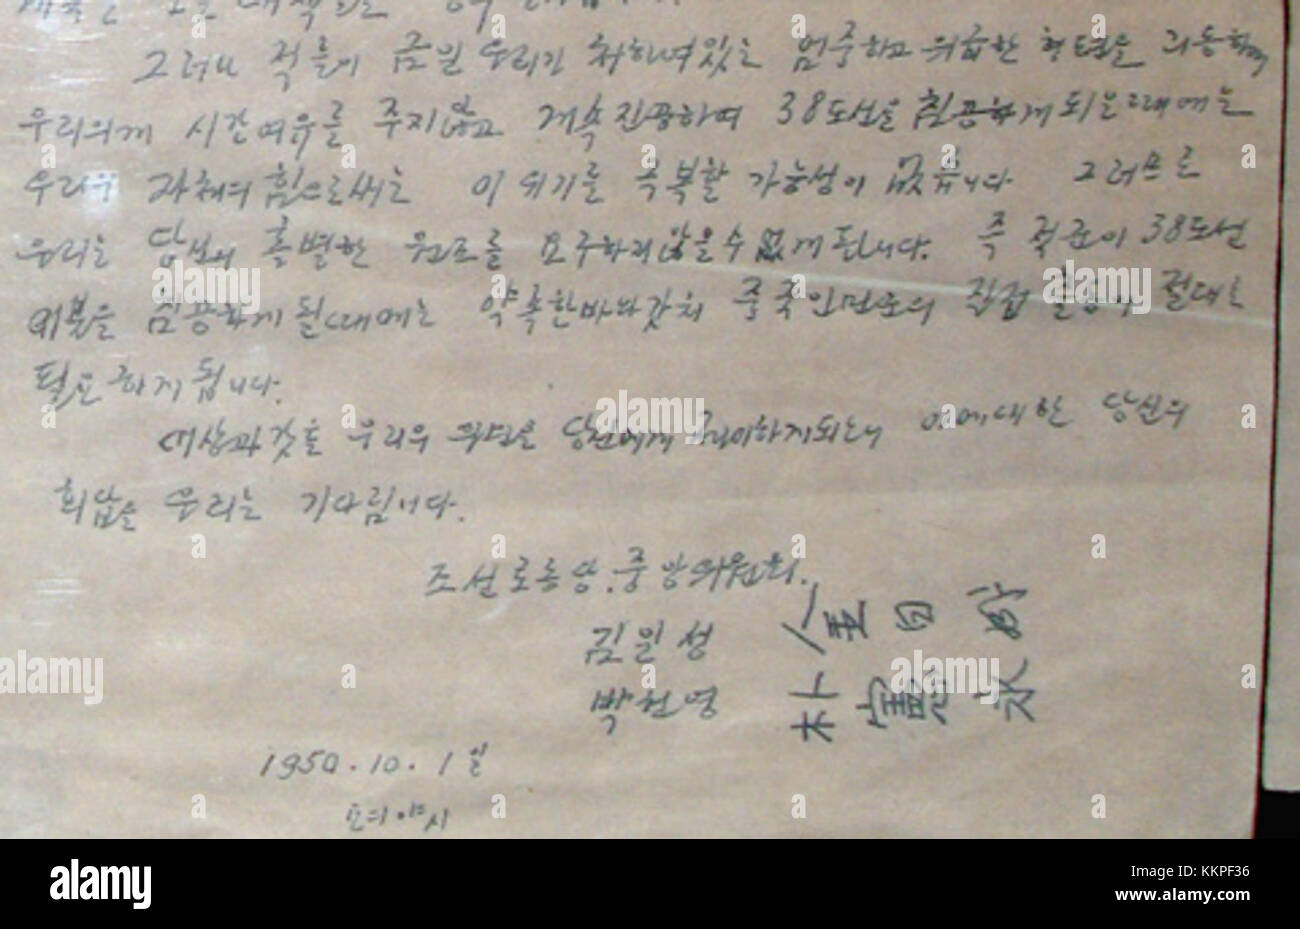 그러나 적들이 금일 우리가 취하여있는 엄중하고 위급한 형편을
우리의게 시간여유를 주지않고 계속진공하여 38도선을 침공하게되는때에는
우리의 자체의 힘으로써는 이 위기를 극복할 가능성이 없습니다. 그러므로
우리는 당신의 특별한 원조를 요구하지않을수없게됩니다. 즉 적군이 38도선
이북을 침공하게될때에는 약속한바와같이 중국인민군의 직접 출동이 절대로
필요하게됩니다.
이상과같은 우리의 의견을 당신에게 하게되는데 이에대한 당신의
회답을 우리는 기다립니다.
조선로동당. 중앙위원회.
김일성 金日成
박헌영 朴憲永
1950. 10. 1일
alamy
Image ID: KKPF36
www.alamy.com